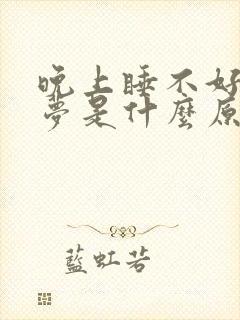 晚上睡不好
夢是什麼原
藍虹若